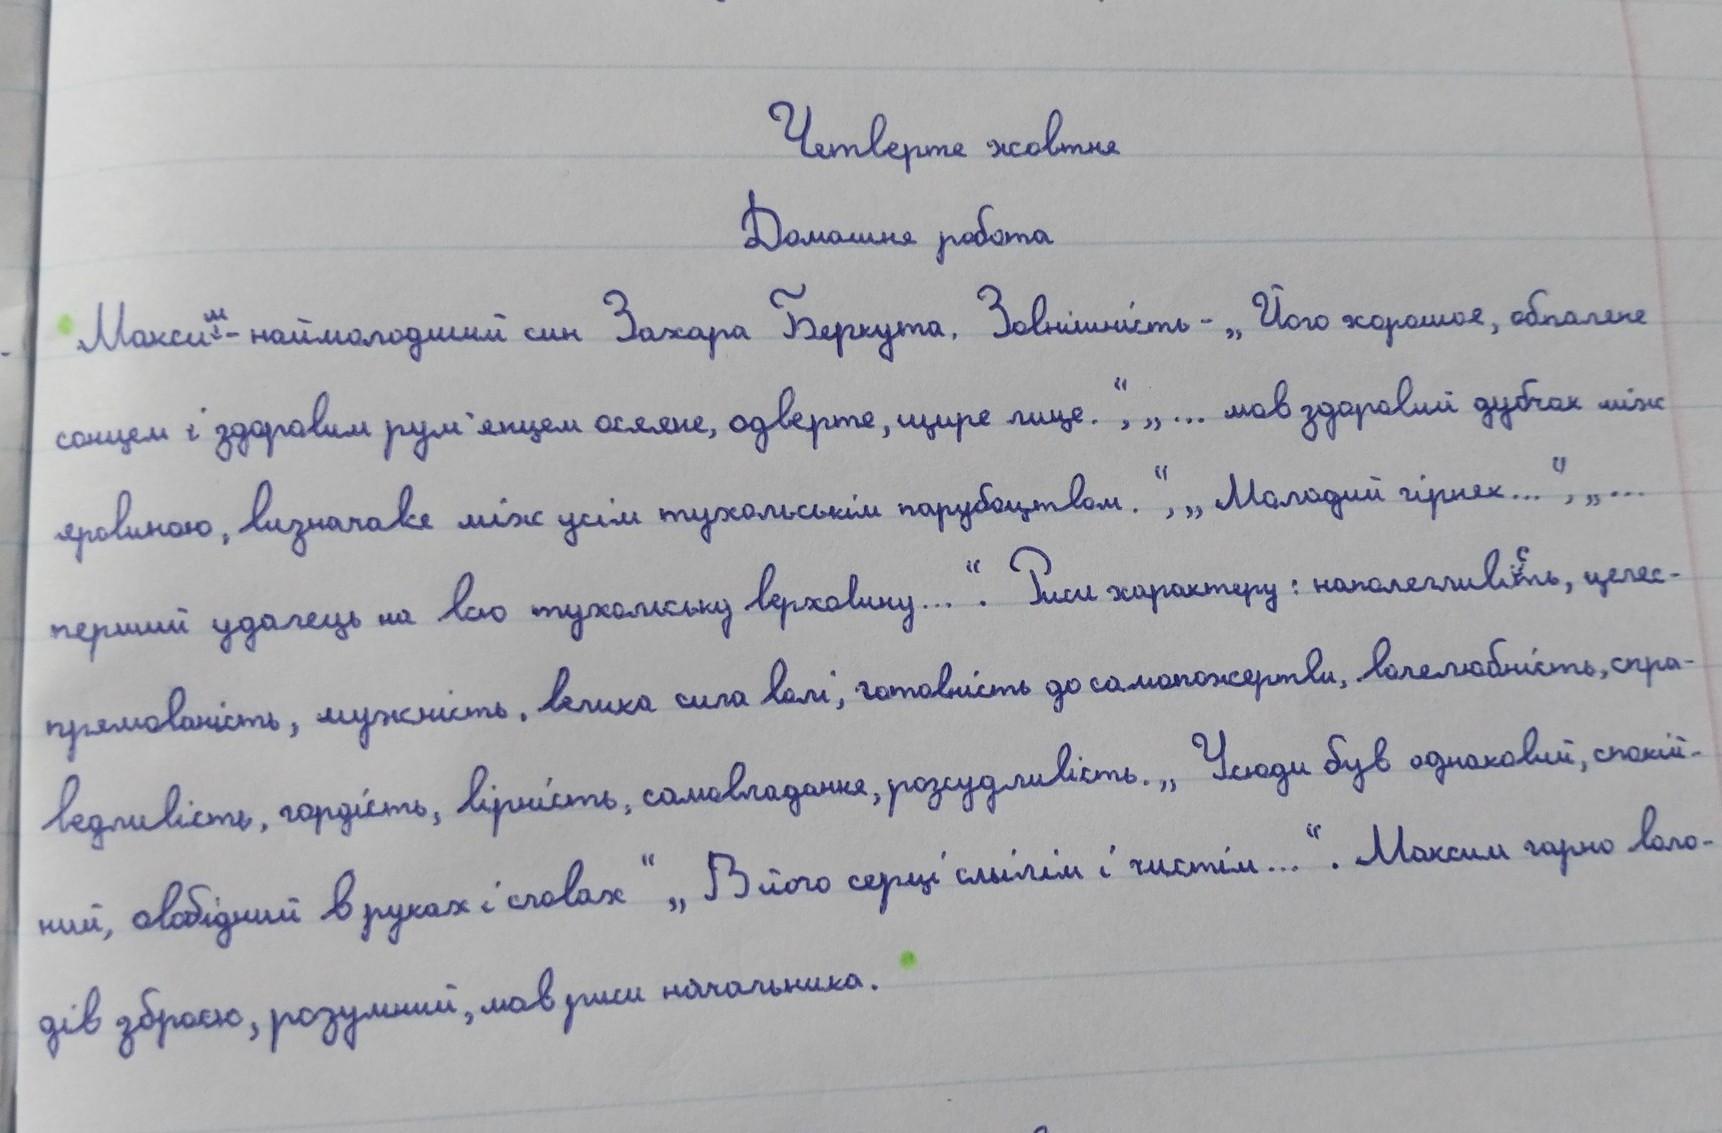 Четверте жовтня
Домашня робота
Максим - наймолодший син Захара Беркута. Зовнішність - „Його хороше, обпалене
сонцем і здоровим рум'янцем осяяне, одверте, щире лице.“, „... мов здоровий дубчак між
яровиною, визначаве між усім тухольськім парубоцтвом.“, „Молодий гірняк...“, „...
перший удалець на всю тухольську верховину...“. Риси характеру: наполегливість, целес-
прямованість, мужність, велика сила волі, готовність до самопожертви, волелюбність, спра-
ведливість, гордість, вірність, самовладання, розсудливість. „Усюди був однаковий, спокій-
ний, свобідний в руках і словах“ „В його серці смілім і чистім...“. Максим гарно воло-
дів зброєю, розумний, мав риси начальника.